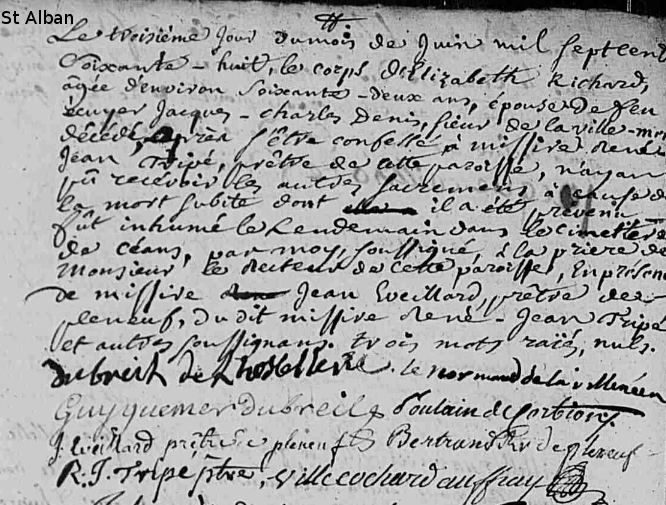 St Alban
Le troisième jour du mois de Juin mil sept cent
Soixante-huit, le corps d'Elizabeth Richard,
âgée d'environ Soixante-deux ans, épouse de feu
écuyer Jacques-charles Denis, sieur de la ville-
décédé, après s'être confessé à missire René
Jean Tripé, prêtre de cette paroisse, n'ayan
pû recevoir les autres Sacremens à cause de
la mort subite dont il a été prévenu,
fût inhumé le Lendemain dans le cimetière
de céans, par moy, soussigné, à la priere de
Monsieur le Recteur de cette paroisse, En présen
de missire Jean Eveillard, prêtre de
pleneuf, du dit missire René-Jean Tripé
et autres soussignans. trois mots raiés, nuls.
dubreil de le normand de la
Guyquemer dubreil Poulain de
J. Eveillard prêtre de pleneuf Bertrand de pleneuf
R. J. Tripé ptre, villecochard auffray